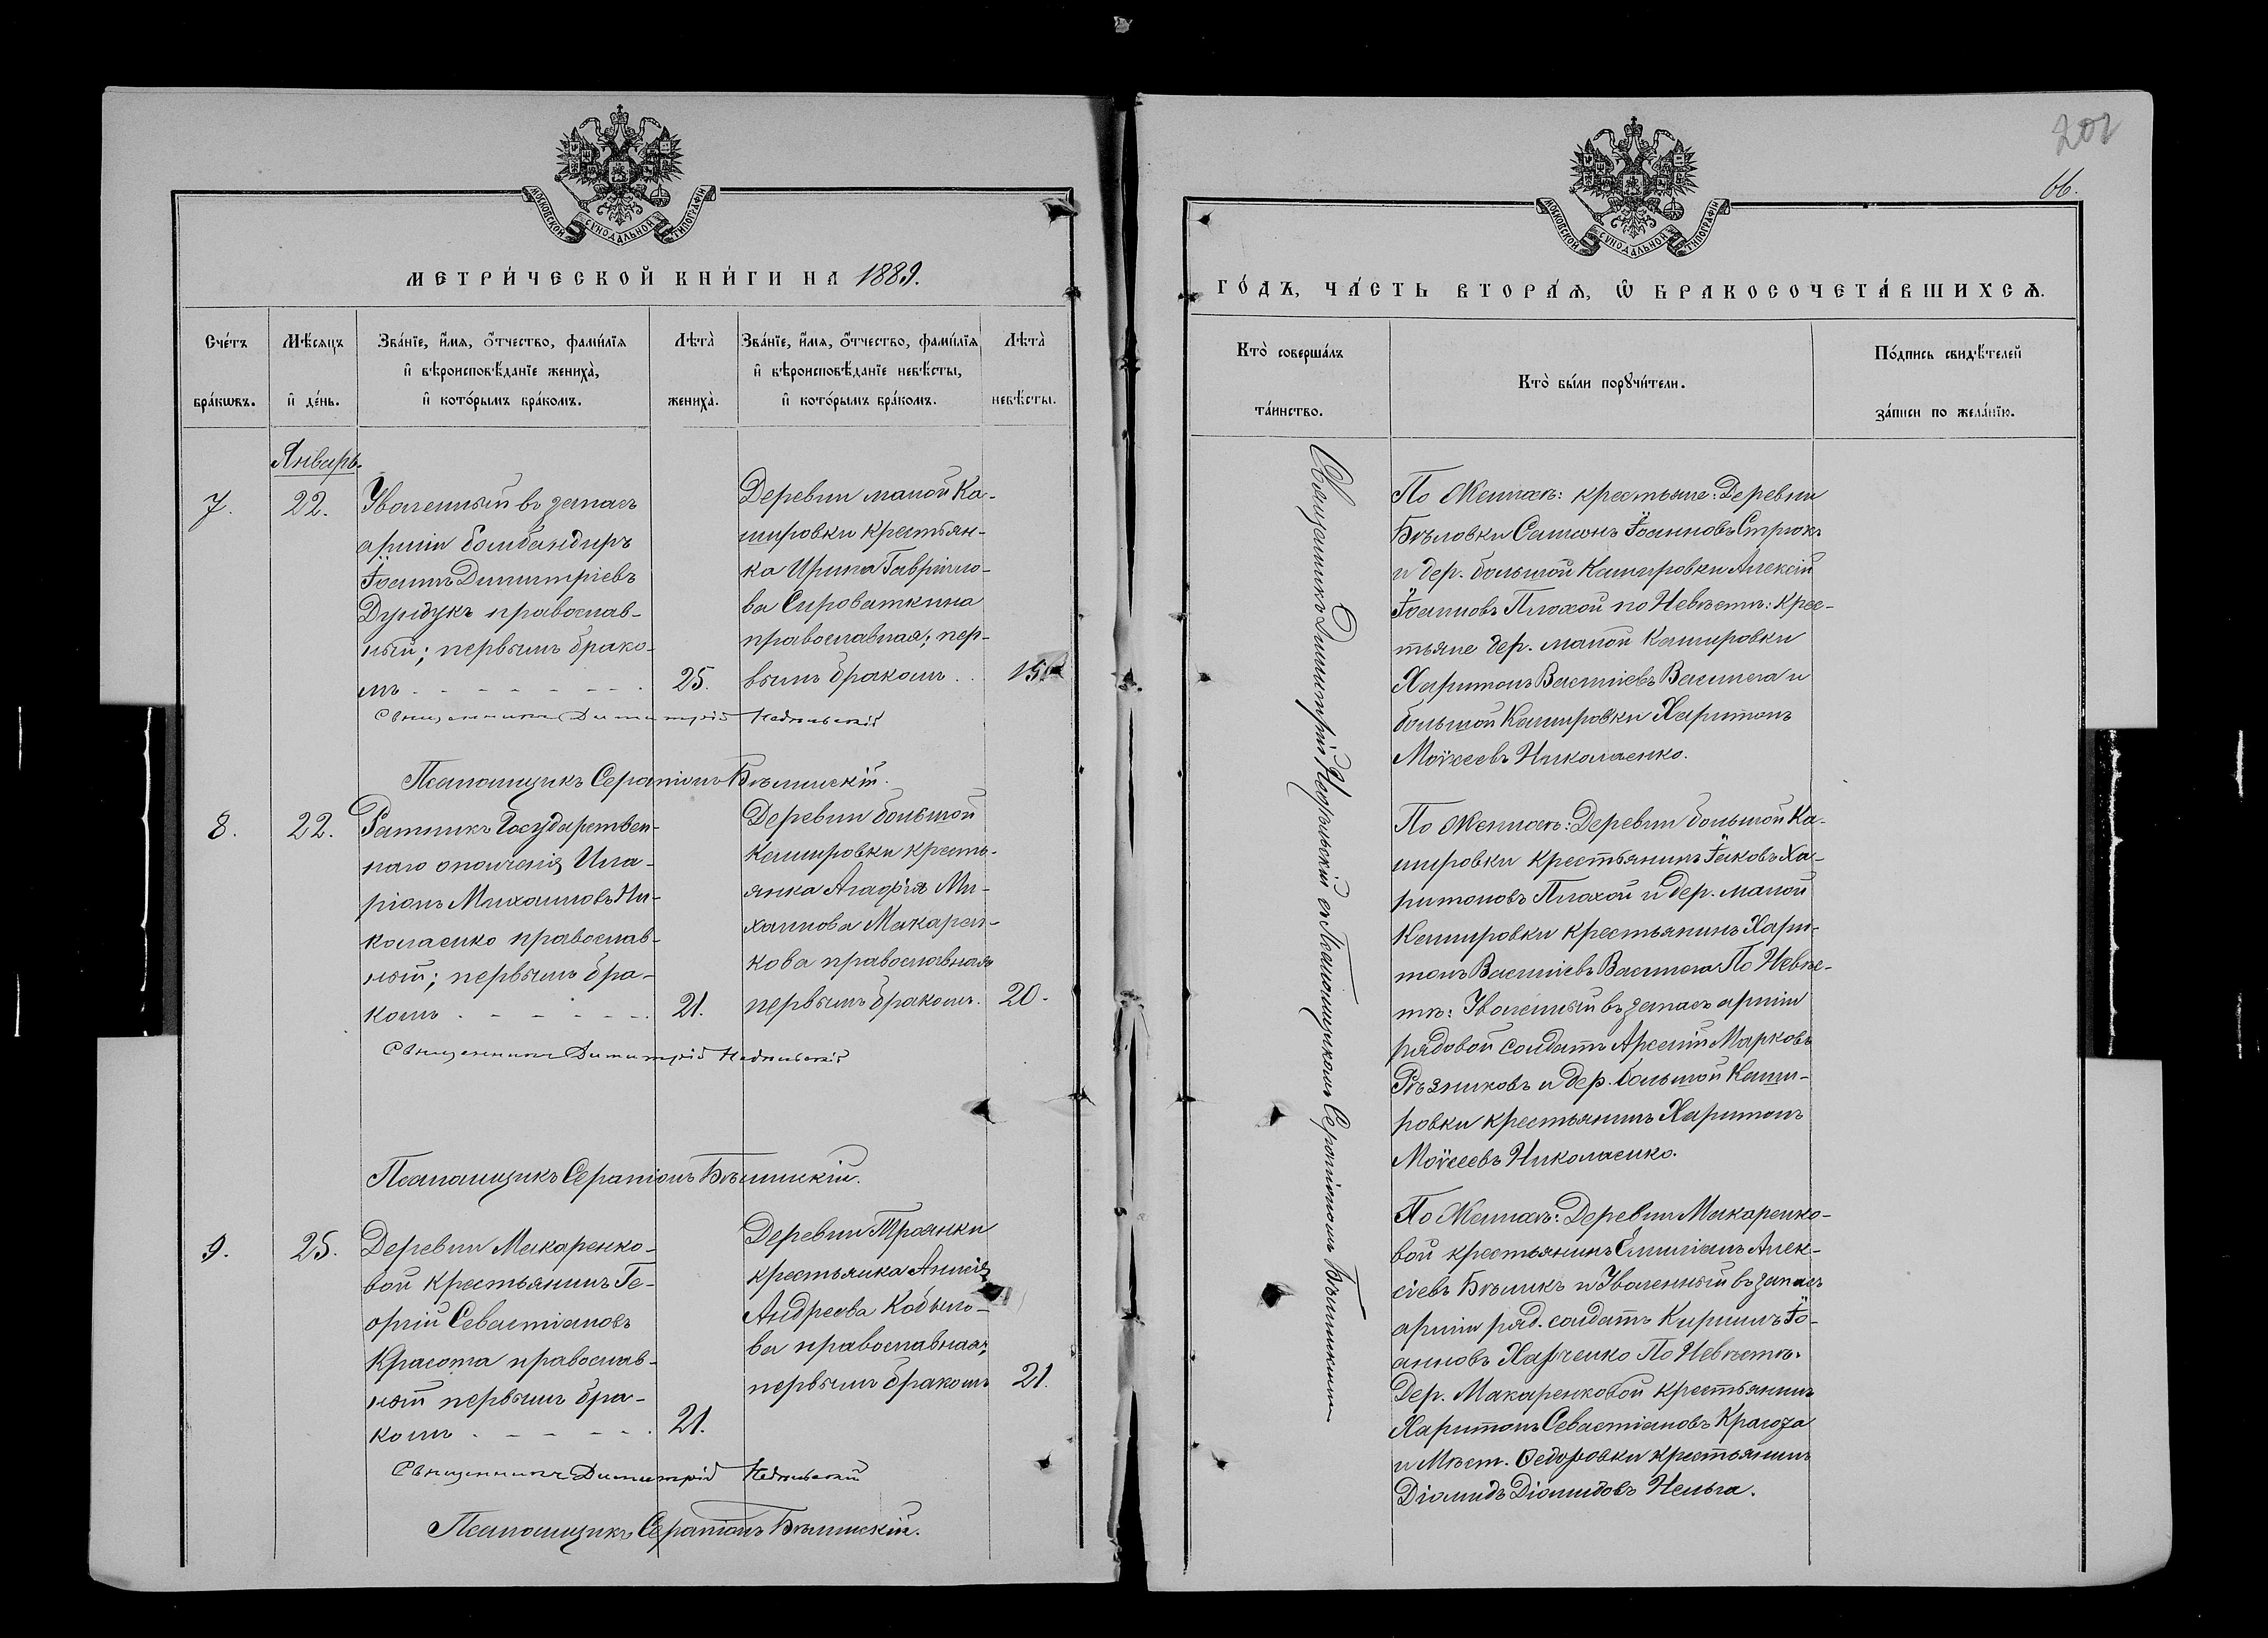 202
66.
МОСКОВСКОЙ СѴНОДАЛЬНОЙ ТИПОГРАФІИ
МЕТРИ́ЧЕСКОЙ КНИ́ГИ НА 1889.
Сче́тъ бра́кѡвъ.
Мѣ́сѧцъ и҆ де́нь.
Зва́нїе, и҆́мѧ, ѻ҆́тчество, фами́лїѧ
и҆ вѣроисповѣ́данїе жениха̀,
и҆ кото́рымъ бра́комъ.
Лѣта̀ жениха̀.
Зва́нїе, и҆́мѧ, ѻ҆́тчество, фами́лїѧ
и҆ вѣроисповѣ́данїе невѣ́сты,
и҆ кото́рымъ бра́комъ.
Лѣта̀ невѣ́сты.
Январь.
7.
22.
Уволенный въ запасъ
арміи бомбандиръ
Іоаннъ Димитріевъ
Дундукъ православ-
ный; первымъ брако-
мъ
25.
Деревни малой Ка-
шировки крестьян-
ка Ирина Гаврило-
ва Сыроваткина
православная; пер-
вымъ бракомъ
Священникъ Димитрій Недѣльскій
Псаломщикъ Серапіонъ Бѣлинскій.
8.
22.
Ратникъ Государствен-
наго ополченія Ила-
ріонъ Михаиловъ Ни-
колаенко православ-
ный; первымъ бра-
комъ
21.
Деревни большой
Кашировки кресть-
янка Агафія Ми-
хаилова Макарен-
кова православная
первымъ бракомъ.
20.
Священникъ Димитрій Недѣльскій
Псаломщикъ Серапіонъ Бѣлинскій.
9.
25.
Деревни Макаренко-
вой крестьянинъ Ге-
оргій Севастіановъ
Красота православ-
ный первымъ бра-
комъ
21.
Деревни Троянки
крестьянка
Андреева Кобыло-
ва православная;
первымъ бракомъ
21.
Священникъ Димитрій Недѣльскій
Псаломщикъ Серапіонъ Бѣлинскій.
МОСКОВСКОЙ СѴНОДАЛЬНОЙ ТИПОГРАФІИ
ГО́ДЪ, ЧА́СТЬ ВТОРА́Ѧ, Ѡ҆ БРАКОСОЧЕТА́ВШИХСѦ.
Кто̀ соверша́лъ та́инство.
Кто̀ бы́ли порꙋчи́тели.
По́дпись свидѣ́телей
за́писи по жела́нїю.
Священникъ Димитрій Недѣльскій съ Псаломщикомъ Серапіономъ Бѣлинскимъ
По Женихѣ: крестьяне: Деревни
Бѣловки Самсонъ Іоанновъ Стрюкъ
и дер. большой Кашировки Алексій
Іоанновъ Плохой по Невѣстѣ: крес-
тьяне дер. малой Кашировки
Харитонъ Василіевъ Васи
большой Кашировки Харитонъ
Моѵсеевъ Николаенко.
По Женихѣ: Деревни большой Ка-
шировки крестьянинъ Іаковъ Ха-
ритоновъ Плохой и дер. малой
Кашировки крестьянинъ Хари-
тонъ Василіевъ По Невѣс-
тѣ: Уволенный въ запасъ арміи
рядовой солдатъ Арсеній Марковъ
Рѣзниковъ и дер. большой Каши-
ровки крестьянинъ Харитонъ
Моѵсеевъ Николаенко.
По Женихѣ: Деревни Макаренко-
вой крестьянинъ Емиліанъ Алек-
сіевъ Бѣликъ и Уволенный въ запасъ
арміи ряд. солдатъ Кириллъ Іо-
анновъ Харченко По Невѣстѣ:
Дер. Макаренковой крестьянинъ
Харитонъ Севастіановъ
и Мѣст. Ѳедоровки крестьянинъ
Діомидъ Діомидовъ